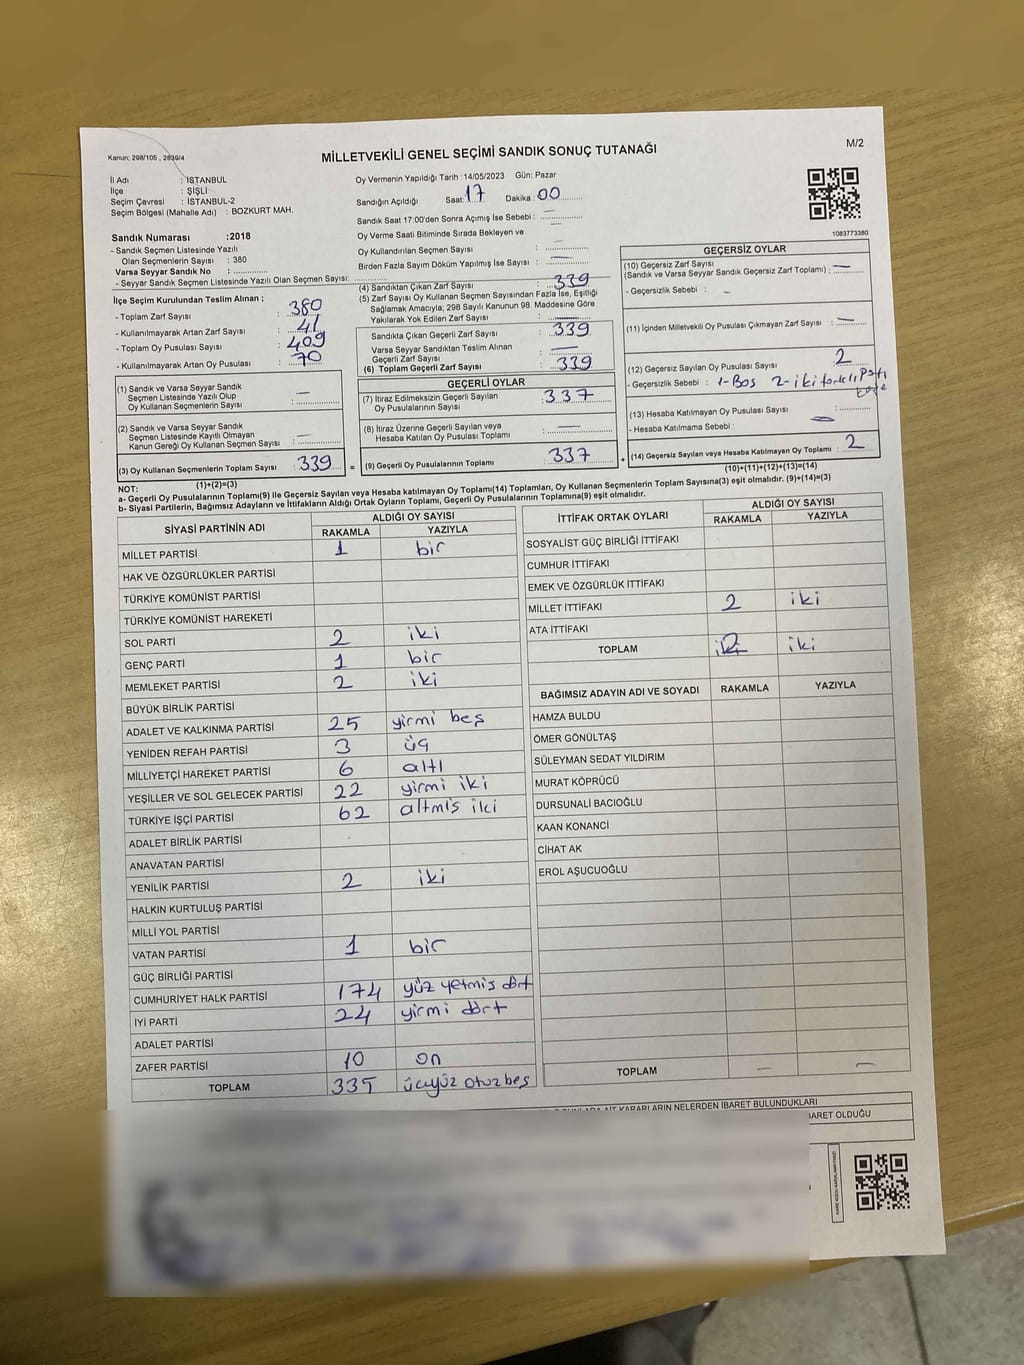 Kanun: 298/105 , 2839/4
MİLLETVEKİLİ GENEL SEÇİMİ SANDIK SONUÇ TUTANAĞI
M/2
İl Adı : İSTANBUL
İlçe : ŞİŞLİ
Seçim Çevresi : İSTANBUL-2
Seçim Bölgesi (Mahalle Adı) : BOZKURT MAH.
Oy Vermenin Yapıldığı Tarih :14/05/2023 Gün: Pazar
Sandığın Açıldığı Saat: 17 Dakika: 00
Sandık Saat 17:00'den Sonra Açımış İse Sebebi : —
Oy Verme Saati Bitiminde Sırada Bekleyen ve
Oy Kullandırılan Seçmen Sayısı : —
Birden Fazla Sayım Döküm Yapılmış İse Sayısı : —
1083773380
Sandık Numarası :2018
- Sandık Seçmen Listesinde Yazılı
Olan Seçmenlerin Sayısı : 380
Varsa Seyyar Sandık No :
- Seyyar Sandık Seçmen Listesinde Yazılı Olan Seçmen Sayısı:
İlçe Seçim Kurulundan Teslim Alınan ;
- Toplam Zarf Sayısı : 380
- Kullanılmayarak Artan Zarf Sayısı : 41
- Toplam Oy Pusulası Sayısı : 409
- Kullanılmayarak Artan Oy Pusulası : 70
(1) Sandık ve Varsa Seyyar Sandık
Seçmen Listesinde Yazılı Olup
Oy Kullanan Seçmenlerin Sayısı : —
(2) Sandık ve Varsa Seyyar Sandık
Seçmen Listesinde Kayıtlı Olmayan
Kanun Gereği Oy Kullanan Seçmen Sayısı : —
(3) Oy Kullanan Seçmenlerin Toplam Sayısı : 339
(1)+(2)=(3)
(4) Sandıktan Çıkan Zarf Sayısı : 339
(5) Zarf Sayısı Oy Kullanan Seçmen Sayısından Fazla İse, Eşitliği
Sağlamak Amacıyla; 298 Sayılı Kanunun 98. Maddesine Göre
Yakılarak Yok Edilen Zarf Sayısı : —
Sandıkta Çıkan Geçerli Zarf Sayısı : 339
Varsa Seyyar Sandıktan Teslim Alınan
Geçerli Zarf Sayısı : —
(6) Toplam Geçerli Zarf Sayısı : 339
GEÇERLİ OYLAR
(7) İtiraz Edilmeksizin Geçerli Sayılan
Oy Pusulalarının Sayısı : 337
(8) İtiraz Üzerine Geçerli Sayılan veya
Hesaba Katılan Oy Pusulası Toplamı : —
= (9) Geçerli Oy Pusularının Toplamı 337
GEÇERSİZ OYLAR
(10) Geçersiz Zarf Sayısı
(Sandık ve Varsa Seyyar Sandık Geçersiz Zarf Toplamı) : —
- Geçersizlik Sebebi : -
(11) İçinden Milletvekili Oy Pusulası Çıkmayan Zarf Sayısı : —
(12) Geçersiz Sayılan Oy Pusulası Sayısı : 2
- Geçersizlik Sebebi : 1-Boş 2-iki farklı parti
(13) Hesaba Katılmayan Oy Pusulası Sayısı :
- Hesaba Katılmama Sebebi : —
+ (14) Geçersiz Sayılan veya Hesaba Katılmayan Oy Toplamı : 2
(10)+(11)+(12)+(13)=(14)
NOT:
a- Geçerli Oy Pusulalarının Toplamı(9) ile Geçersiz Sayılan veya Hesaba katılmayan Oy Toplamı(14) Toplamları, Oy Kullanan Seçmenlerin Toplam Sayısına(3) eşit olmalıdır. (9)+(14)=(3)
b- Siyasi Partilerin, Bağımsız Adayların ve İttifakların Aldığı Ortak Oyların Toplamı, Geçerli Oy Pusulalarının Toplamına(9) eşit olmalıdır.
SİYASİ PARTİNİN ADI ALDIĞI OY SAYISI
RAKAMLA YAZIYLA
MİLLET PARTİSİ 1 bir
HAK VE ÖZGÜRLÜKLER PARTİSİ
TÜRKİYE KOMÜNİST PARTİSİ
TÜRKİYE KOMÜNİST HAREKETİ
SOL PARTİ 2 iki
GENÇ PARTİ 1 bir
MEMLEKET PARTİSİ 2 iki
BÜYÜK BİRLİK PARTİSİ
ADALET VE KALKINMA PARTİSİ 25 yirmi beş
YENİDEN REFAH PARTİSİ 3 üç
MİLLİYETÇİ HAREKET PARTİSİ 6 altı
YEŞİLLER VE SOL GELECEK PARTİSİ 22 yirmi iki
TÜRKİYE İŞÇİ PARTİSİ 62 altmış iki
ADALET BİRLİK PARTİSİ
ANAVATAN PARTİSİ
YENİLİK PARTİSİ 2 iki
HALKIN KURTULUŞ PARTİSİ
MİLLİ YOL PARTİSİ
VATAN PARTİSİ 1 bir
GÜÇ BİRLİĞİ PARTİSİ
CUMHURİYET HALK PARTİSİ 174 yüz yetmiş dört
İYİ PARTİ 24 yirmi dört
ADALET PARTİSİ
ZAFER PARTİSİ 10 on
TOPLAM 335 üçyüz otuz beş
İTTİFAK ORTAK OYLARI ALDIĞI OY SAYISI
RAKAMLA YAZIYLA
SOSYALİST GÜÇ BİRLİĞİ İTTİFAKI
CUMHUR İTTİFAKI
EMEK VE ÖZGÜRLÜK İTTİFAKI
MİLLET İTTİFAKI 2 iki
ATA İTTİFAKI
TOPLAM 2 iki
BAĞIMSIZ ADAYIN ADI VE SOYADI RAKAMLA YAZIYLA
HAMZA BULDU
ÖMER GÖNÜLTAŞ
SÜLEYMAN SEDAT YILDIRIM
MURAT KÖPRÜCÜ
DURSUNALİ BACIOĞLU
KAAN KONANCİ
CİHAT AK
EROL AŞUCUOĞLU
TOPLAM — —
KARARLARIN NELERDEN İBARET BULUNDUKLARI
İBARET OLDUĞU